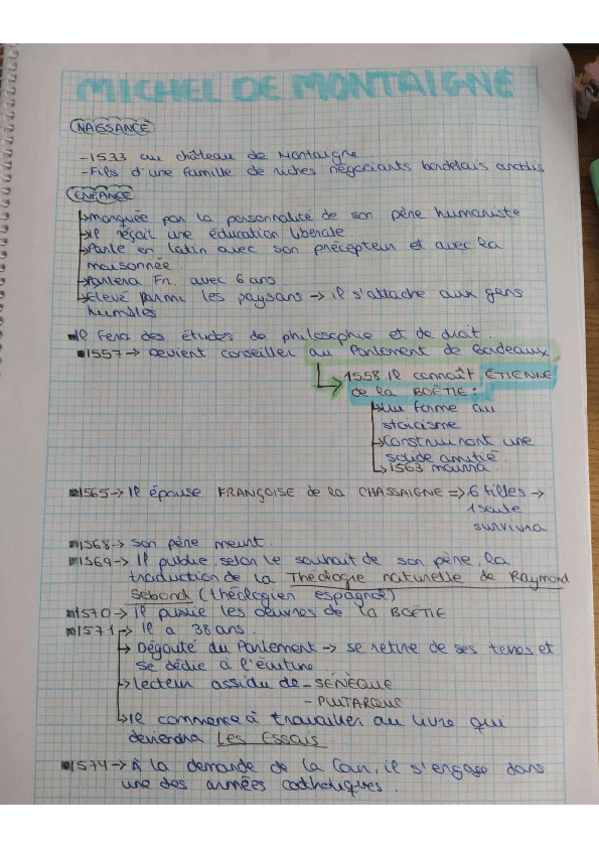 MICHEL DE MONTAIGNE
NAISSANCE
-1533 au château de Montaigne
-Fils d'une famille de riches négociants bordelais anoblis
ENFANCE
↳Marquée par la personnalité de son père humaniste
→Il reçait une éducation liberale
→Parle en latin avec son précepteur et avec la
maisonnée
→Parlera Fr. avec 6 ans
→Elevé parmi les paysans → il s'attache aux gens
humbles
Il fera des études de philosophie et de droit
1557→ Devient conseiller au Parlement de Bordeaux
1558 il connaît ETIENNE
de la BOËTIE:
→Lui forme au
stoïcisme
→Construiront une
solide amitié
↳1563 mourra
1565→ Il épouse FRANÇOISE de la CHASSAIGNE => 6 filles →
1 seule
survivra
1568→ son père meurt.
1569→ Il publie, selon le souhait de son père, la
traduction de la Théologie naturelle de Raymond
Sebond (théologien espagnol)
1570→ Il publie les œuvres de la BOËTIE
1571→ Il a 38 ans.
→ Dégouté du Parlement → se retire de ses terres et
se dédie à l'écriture.
→Lecteur assidu de - SÉNÈQUE
- PLUTARQUE
↳Il commence à travailler au livre qui
deviendra Les Essais
1574→ À la demande de la Cour, il s'engage dans
une des armées catholiques.